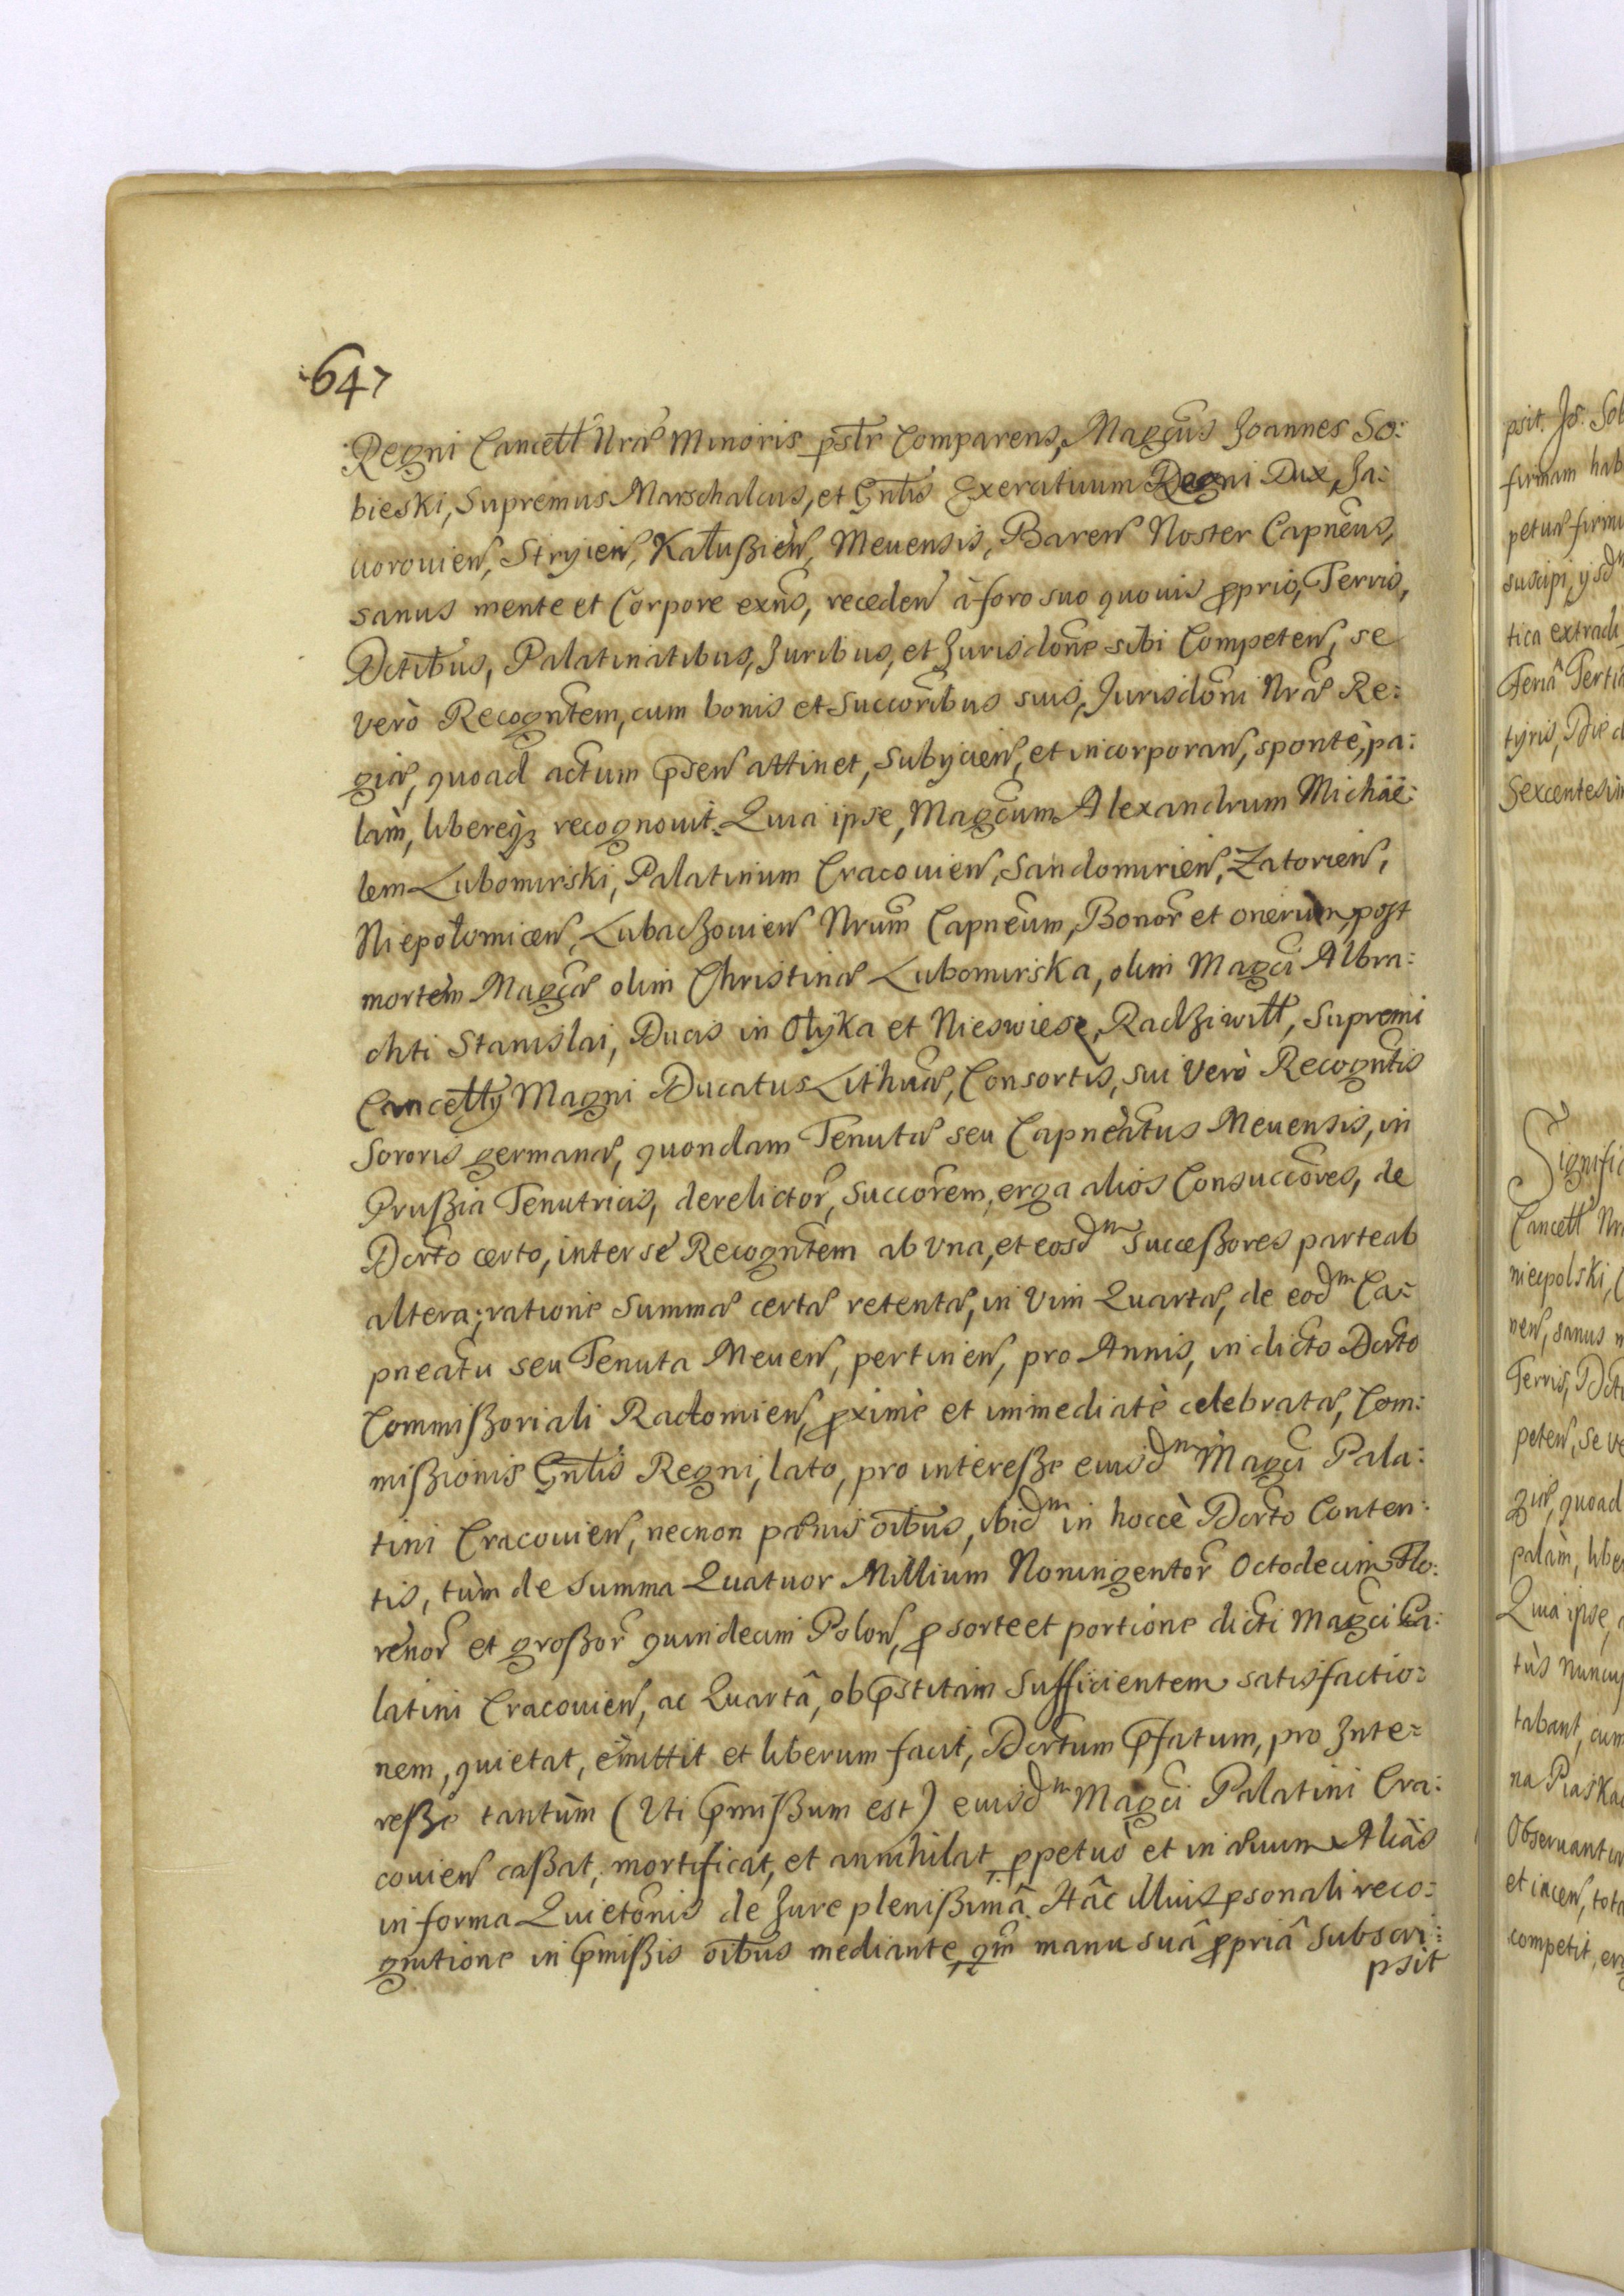 647
Regni Cancell Nrae Minoris pstr Comparens, Magcus Joannes So:
bieski, Supremus Marschalcus, et Gnlis Exercituum Regni Dux, Ja:
uorouien, Stryien, Kałußien, Meuensis, Baren Noster Capneus,
sanus mente et Corpore exns, receden à foro suo quouis pprio, Terris,
Dctibus, Palatinatibus, Juribus, et Jurisdone sibi Competen, se
verò Recogntem, cum bonis et Succoribus suis, Jurisdoni Nrae Re:
giae, quoad actum psen attinet, Subijcien, et incorporan, spontè, pa:
làm, libereqз recognouit. Quia ipse, Magcum Alexandrum Michäe:
lem Lubomirski, Palatinum Cracouien, Sandomirien, Zatorien,
Niepołomicen, Lubaczouien Nrum Capneum, Bonor et onerum, post
mortem Magcae olim Christinae Lubomirska, olim Magci Albra:
chti Stanislai, Ducis in Ołyka et Nieswiesz, Radziwiłł, Supremi
Cancellrÿ Magni Ducatus Lithuae, Consortis, sui Verò Recogntis
Sororis germanae, quondam Tenutae seu Capneatus Meuensis, in
Prußia Tenutricis, derelictor, Succorem, erga alios Consuccores, de
Dcrto certo, inter se Recogntem ab Vna, et eosdm Succeßores parte ab
altera, ratione Summae certae retentae, in Vim Quartae, de eodm Ca:
pneatu seu Tenuta Meuen, pertinen, pro Annis, in dicto Dcrto
Commißoriali Radomien, pximè et immediatè celebratae, Com:
mißionis Gnlis Regni, lato, pro intereße eiusdm Magci Pala:
tini Cracouien, necnon paenis oibus, ibidm in hoccè Dcrto Conten:
tis, tùm de Summa Quatuor Millium Noningentor Octodecim Flo:
renor et großor quindecim Polon, p sorte et portione dicti Magci Pa:
latini Cracouien, ac Quartâ, ob pstitam Sufficientem satisfactio:
nem, quietat, emittit et liberum facit, Dcrtum pfatum, pro Inte:
reße tantùm (Vti pmißum est) eiusdm Magci Palatini Cra:
couien caßat, mortificat, et annihilat, ppetuò et in aeuum. Aliàs
in forma Quietonis de Jure plenißimâ. Hâc illius psonali reco:
gnitione in pmißis oibus mediante, qm manu suâ ppriâ Subscri:
psit